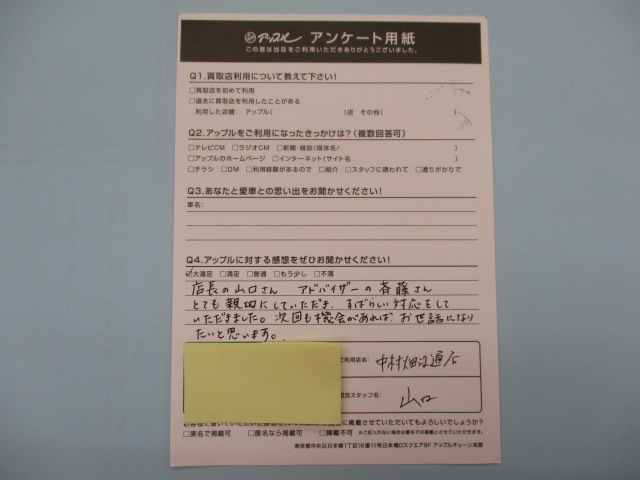 アップル アンケート用紙
この度は当店をご利用いただきありがとうございました。
Q1.買取店利用について教えて下さい!
□買取店を初めて利用
□過去に買取店を利用したことがある
利用した店舗: アップル( )店 その他( )
Q2.アップルをご利用になったきっかけは?(複数回答可)
□テレビCM □ラジオCM □新聞・雑誌(媒体名/ )
□アップルのホームページ □インターネット(サイト名 )
□チラシ □DM □利用経験があるので □紹介 □スタッフに誘われて □通りがかりで
Q3.あなたと愛車との思い出をお聞かせください!
車名:
Q4.アップルに対する感想をぜひお聞かせください!
☑大満足 □満足 □普通 □もう少し □不満
店長の山口さん アドバイザーの斉藤さん
とても親切にしていただき、すばらしい対応をして
いただきました。次回も機会があれば、お世話になり
たいと思います。
ご利用店名: 中村畑江通店
担当スタッフ名: 山口
に掲載させていただいてもよろしいでしょうか?
□実名で掲載可 □匿名なら掲載可 □掲載不可 ※ご記入がない場合は匿名での掲載とさせていただきます。
東京都中央区日本橋1丁目16番11号日本橋Dスクエア9F アップルチェーン本部